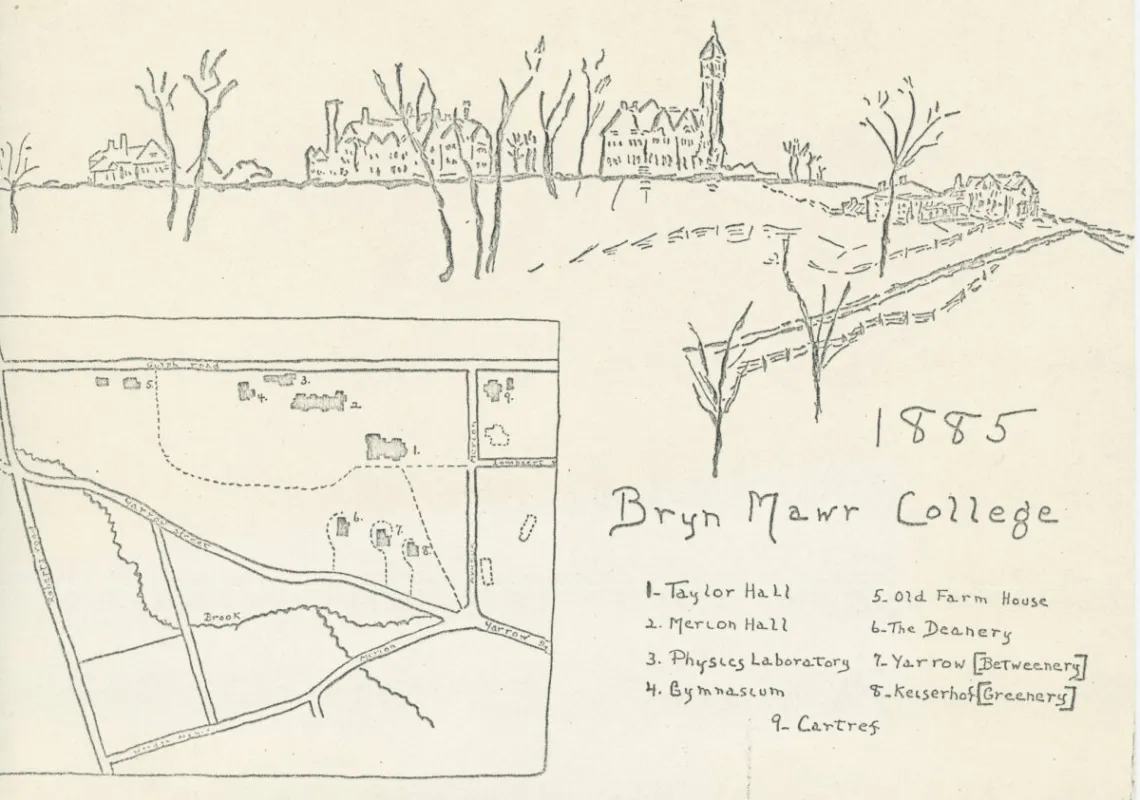 Gulph road
5.
3.
4.
2
9.
1.
Merion
Lombaert
6.
7.
8.
Yarrow Street
Roberts Road
Brook
Merion
Yarrow St
1885
Bryn Mawr College
1- Taylor Hall
2. Merion Hall
3. Physics Laboratory
4. Gymnasium
5- Old Farm House
6- The Deanery
7- Yarrow [Betweenery]
8- Keiserhof [Greenery]
9- Cartref